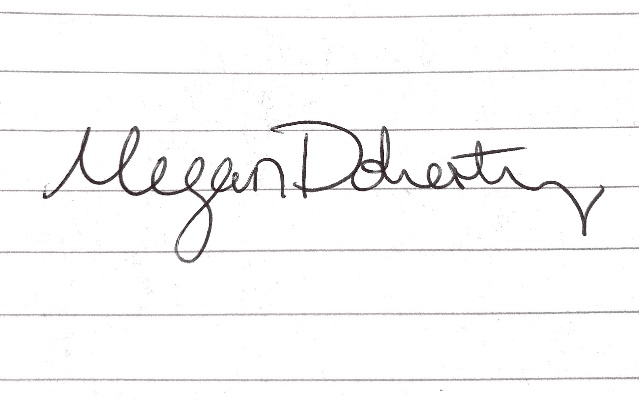 Megan Doherty